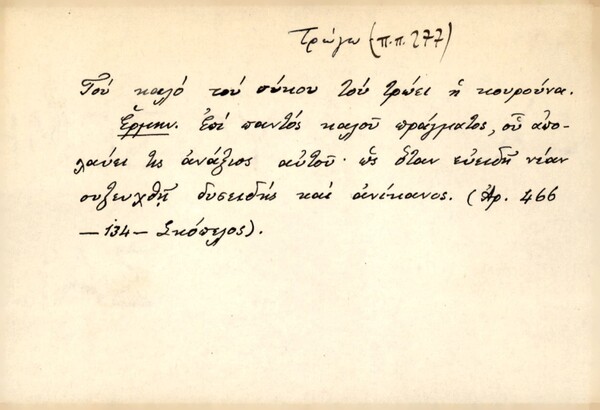 Τρώγω (π.π. 277)
Τοὺ καλό τοὺ σύκου τοὺ τρώει ἡ κουρούνα.
Ἑρμην. Ἐπί παντός καλοῦ πράγματος, οὗ ἀπο-
λαύει τις ἀνάξιος αὐτοῦ· ὡς ὅταν εὐειδῆ νέαν
συζευχθῇ δυσειδής καί ἀνίκανος. (Ἀρ. 466
— 134 — Σκόπελος).